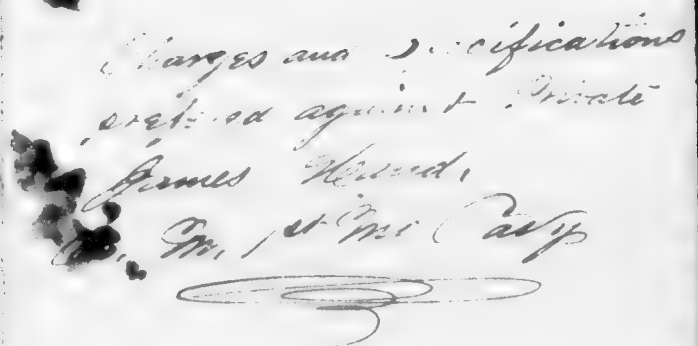 Charges and Specifications
prefered against Private
James
M, 1st Mo Cavy